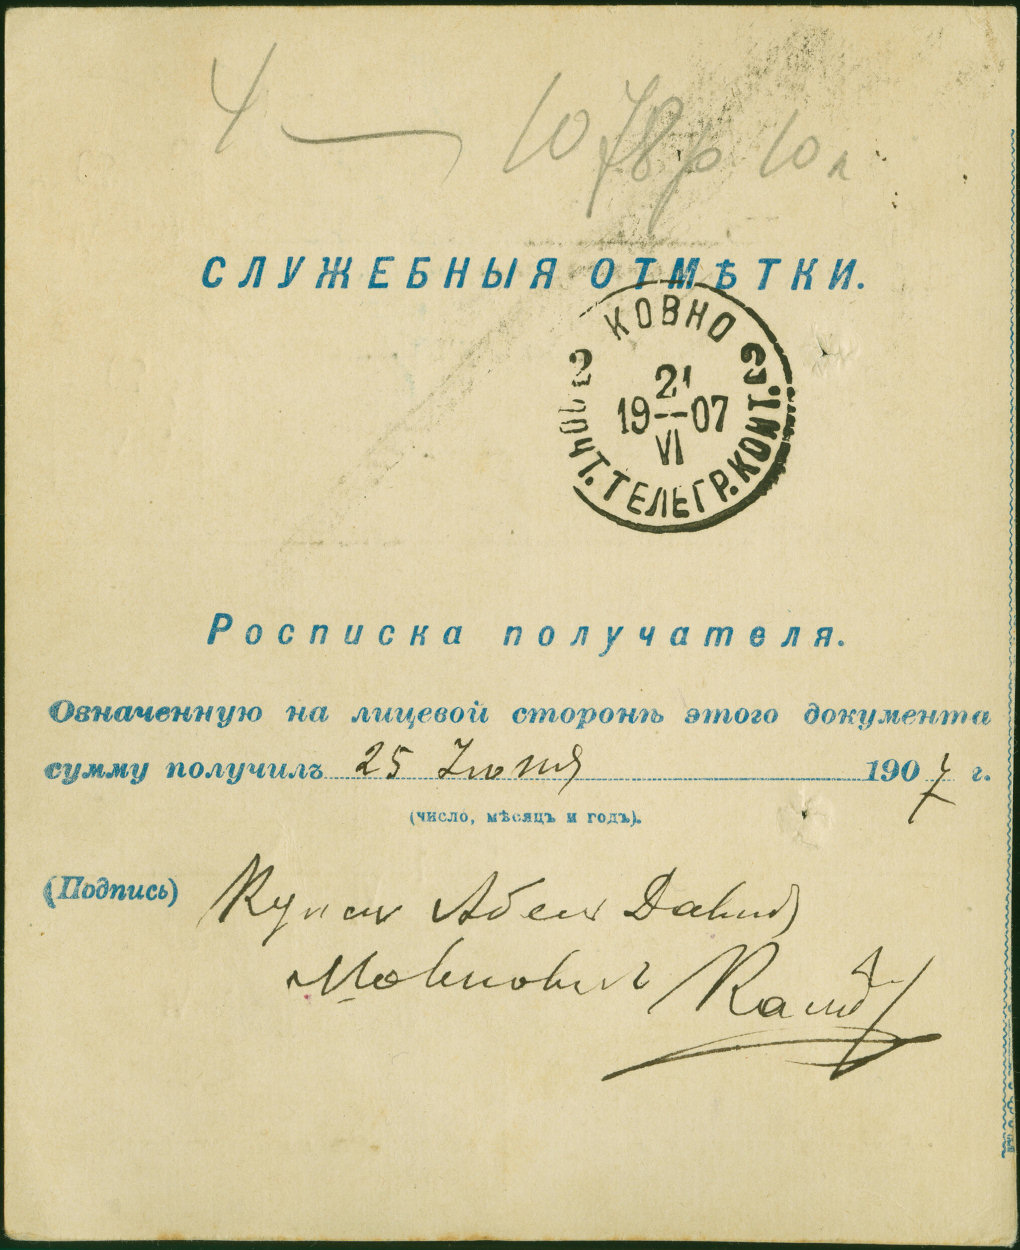 4 — 1078р 10 к
СЛУЖЕБНЫЯ ОТМѢТКИ.
КОВНО
2 2
21
19--07
VI
ПОЧТ. ТЕЛЕГР. КОНТ.
Росписка получателя.
Означенную на лицевой сторонѣ этого документа
сумму получилъ 25 Іюня 1907 г.
(число, мѣсяцъ и годъ).
(Подпись) Абель Давид